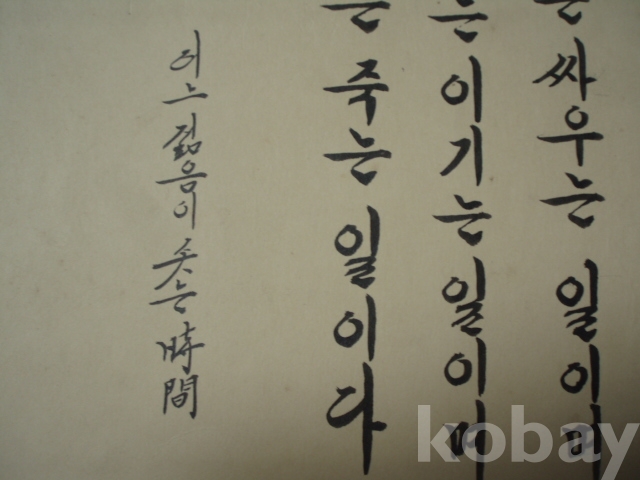 는 싸우는 일이며
는 이기는 일이며
는 죽는 일이다
어느 젊음이 솟는 時間
kobay